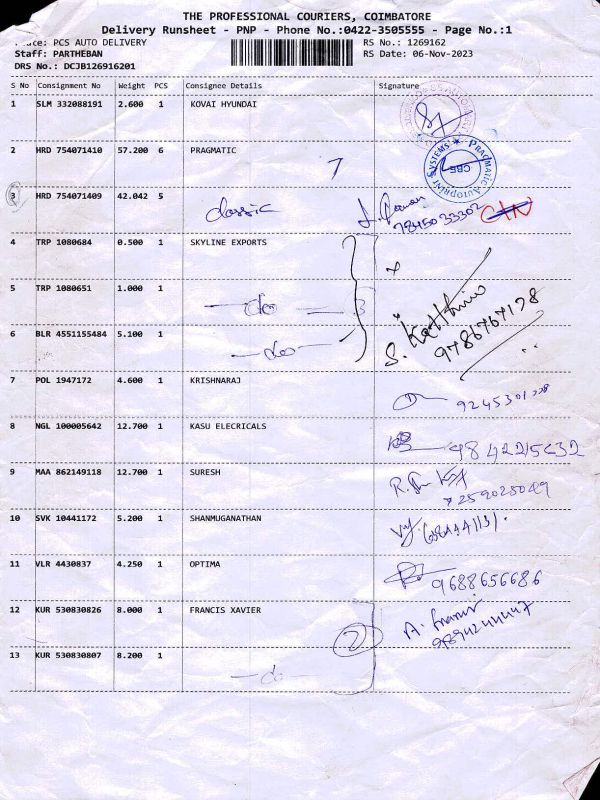 THE PROFESSIONAL COURIERS, COIMBATORE
Delivery Runsheet - PNP - Phone No.:0422-3505555 - Page No.:1
PCS AUTO DELIVERY
RS No.: 1269162
Staff: PARTHEBAN
RS Date: 06-Nov-2023
DRS No.: DCJB126916201
S No Consignment No Weight PCS Consignee Details Signature
1 SLM 332088191 2.600 1 KOVAI HYUNDAI
2 HRD 754071410 57.200 6 PRAGMATIC
7
SYSTEMS ★ Pragmatic Autoprint
CBE
3 HRD 754071409 42.042 5 classic
7845033302
4 TRP 1080684 0.500 1 SKYLINE EXPORTS
5 TRP 1080651 1.000 1 —do— 3
6 BLR 4551155484 5.100 1 —do—
S. Karthi
9786767178
7 POL 1947172 4.600 1 KRISHNARAJ
8 NGL 100005642 12.700 1 KASU ELECRICALS
9 MAA 862149118 12.700 1 SURESH
10 SVK 10441172 5.200 1 SHANMUGANATHAN
11 VLR 4430837 4.250 1 OPTIMA 9688656686
12 KUR 530830826 8.000 1 FRANCIS XAVIER
2
13 KUR 530830807 8.200 1 —do—